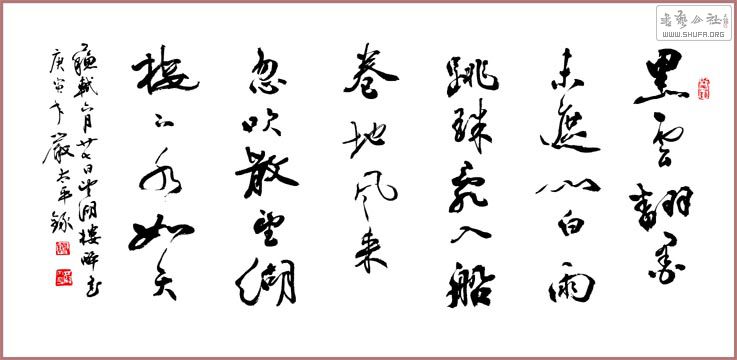 黑雲翻墨
未遮山白雨
跳珠亂入船
卷地風来
忽吹散望湖
樓下水如天
蘇軾六月廿七日望湖樓醉書
庚寅年嚴太平錄
书艺公社
WWW.SHUFA.ORG